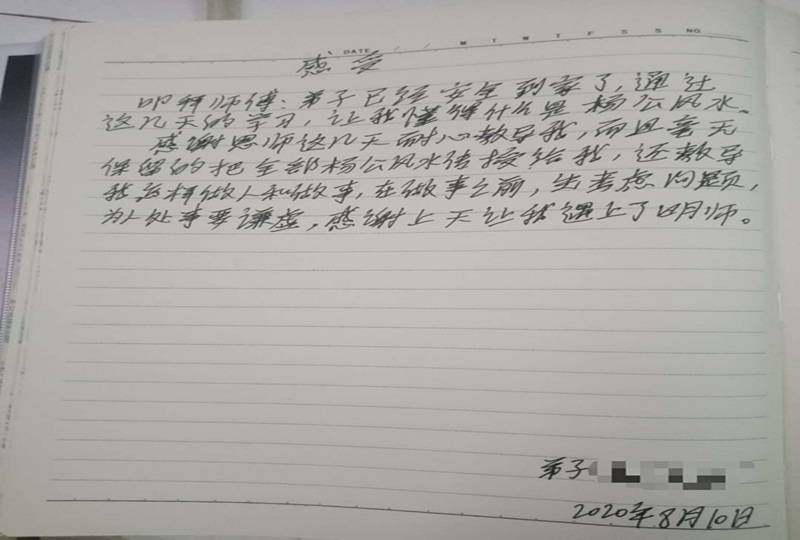 DATE / / M T W T F S S NO.
感受
叩拜师傅：弟子已经安全到家了，通过
这几天的学习，让我懂得什么是杨公风水。
感谢恩师这几天耐心教导我，而且毫无
保留的把全部杨公风水传授给我，还教导
我怎样做人和做事，在做事之前，先考虑问题，
为人处事要谦虚，感谢上天让我遇上了明师。
弟子
2020年8月10日